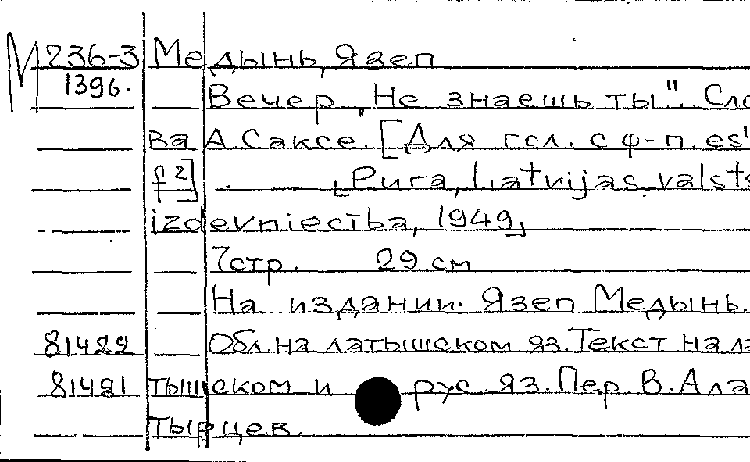 М 236-3 Медынь, Язеп
1396.
Вечер „Не знаешь ты". Сло
ва А. Саксе. [Для гсл. с ф-п. es'
f²] . [Рига, Latvijas valsts
izdevniecība, 1949]
7 стр. 29 см
На издании: Язеп Медынь.
81422 Обл. на латышском яз. Текст на ла
81421 тышском и рус яз. Пер. В. Ала
тырцев.